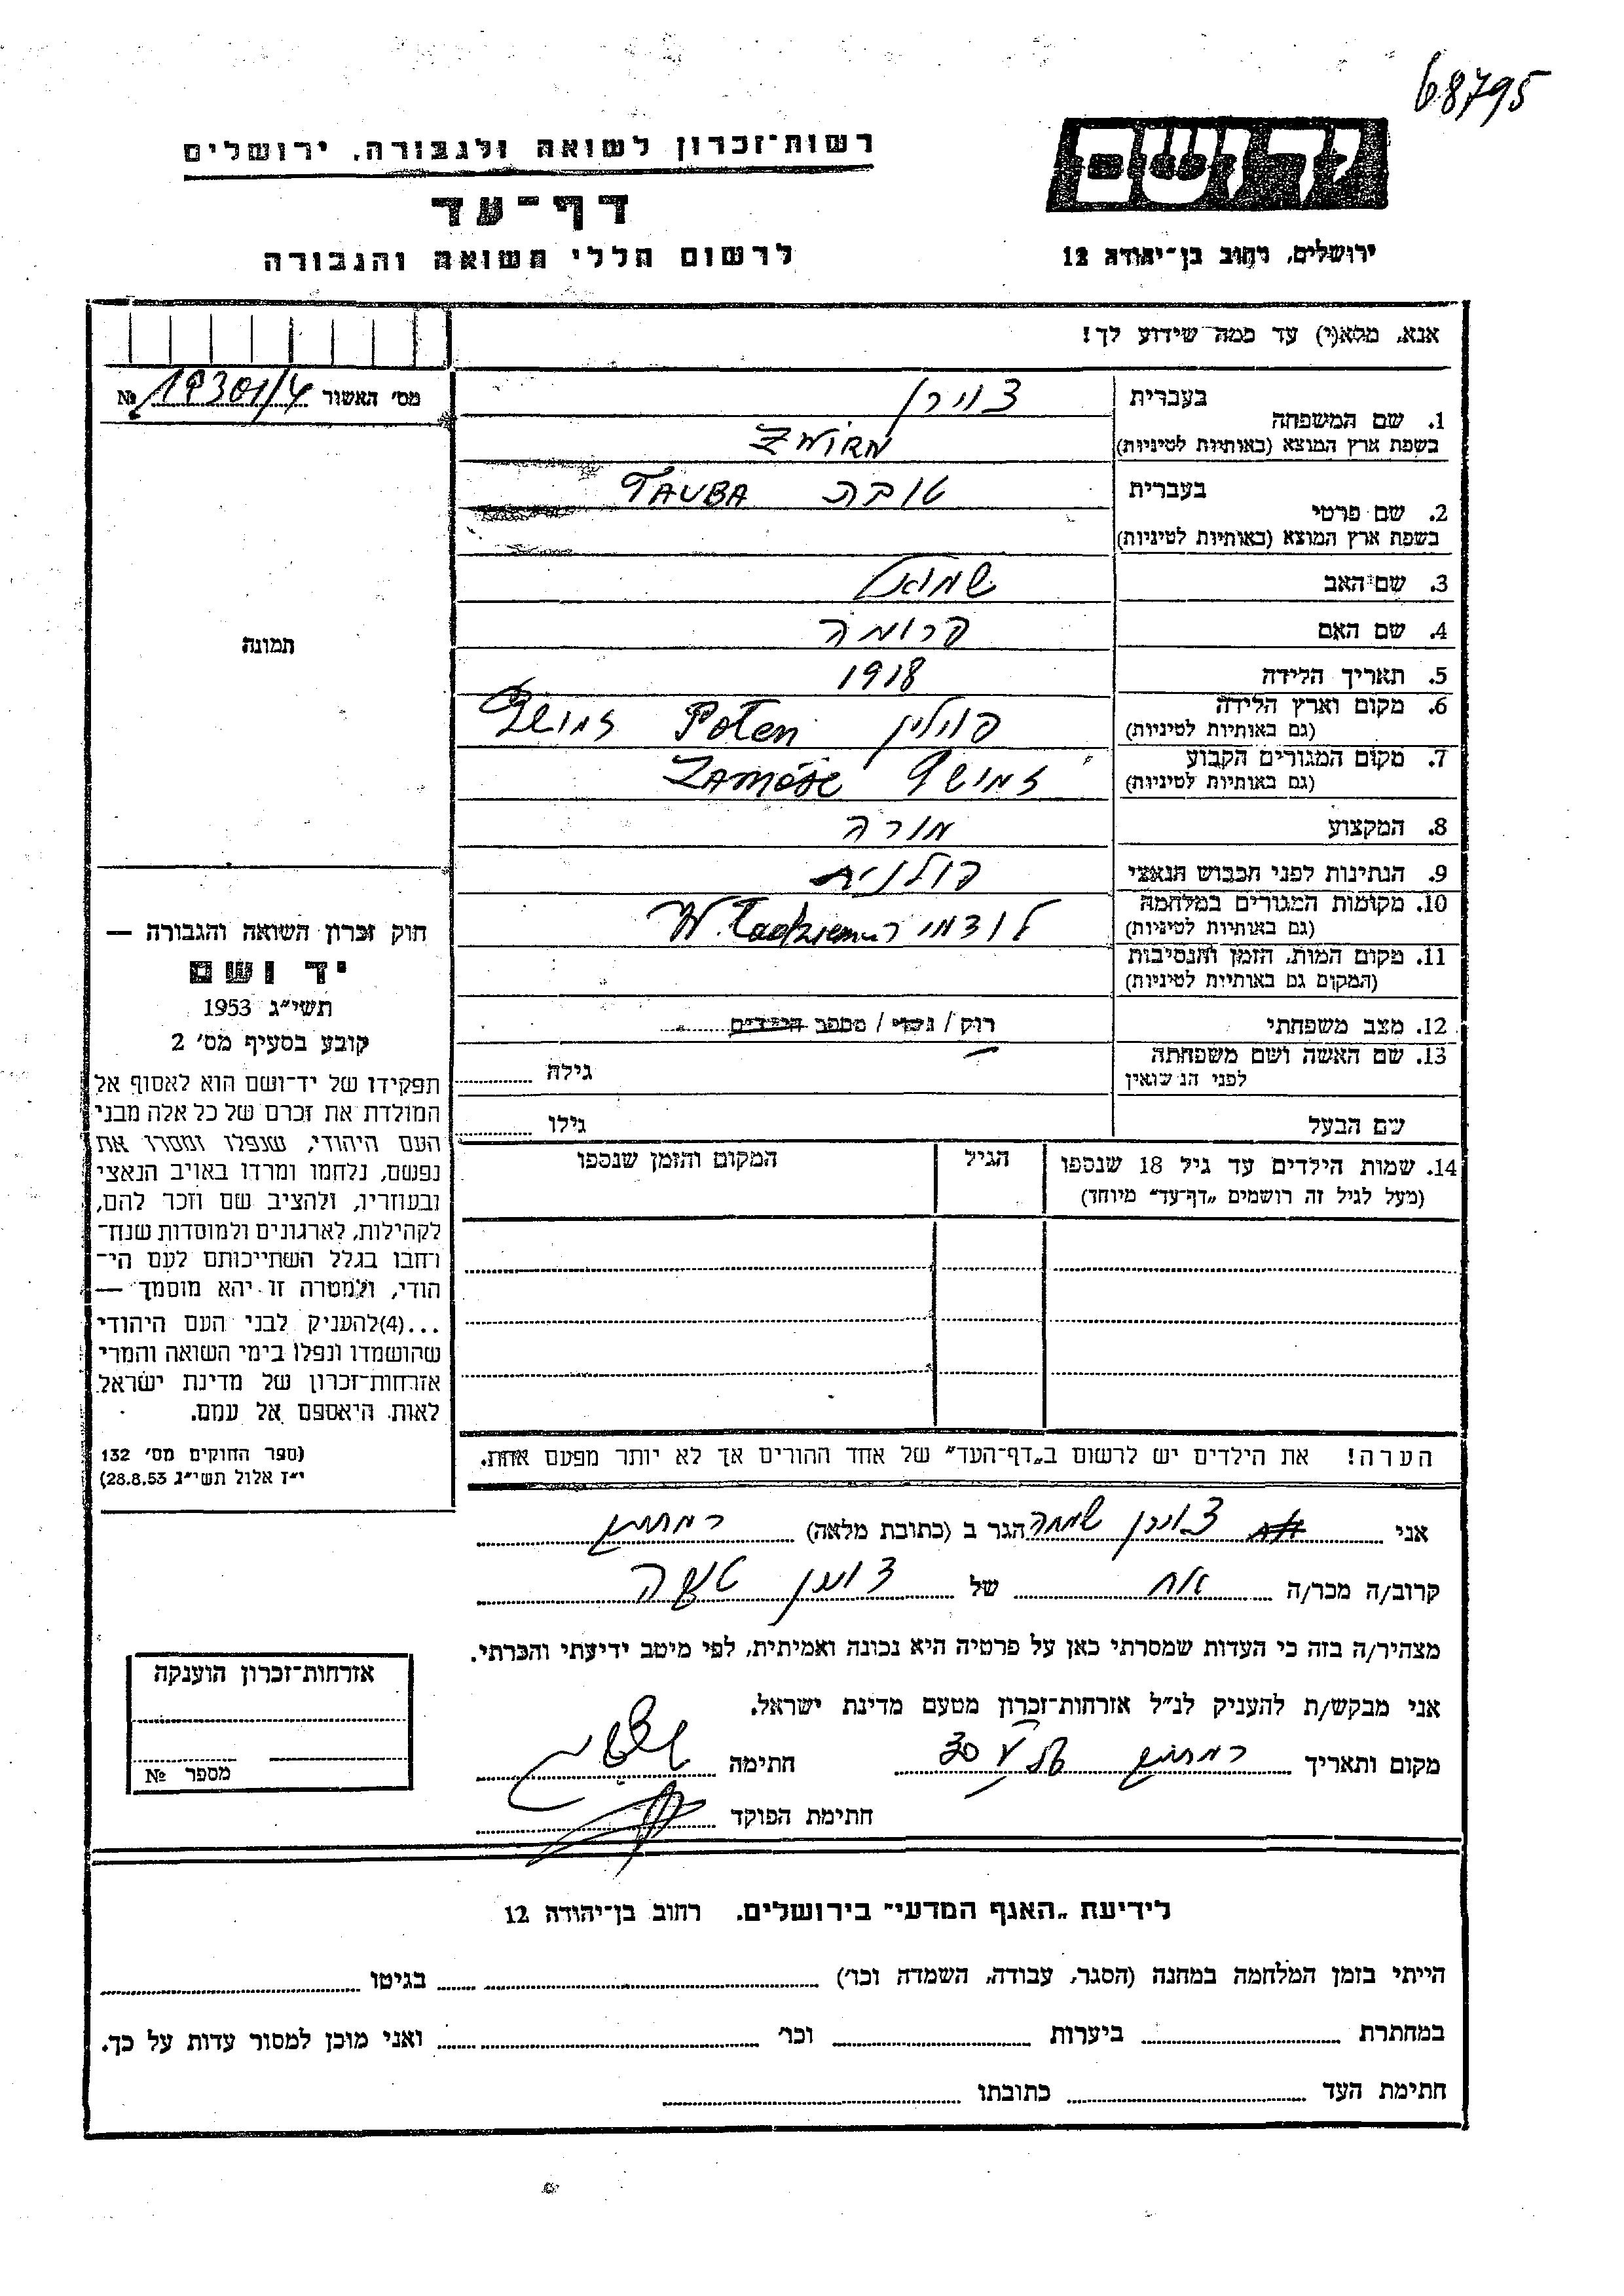 68795
יד ושם
רשות־זכרון לשואה ולגבורה, ירושלים
דף־עד
לרשום חללי השואה והגבורה
ירושלים, רחוב בן־יהודה 12
אנא, מלא(י) עד כמה שידוע לך!
מס' האשור 19301/4 №
1. שם המשפחה
בעברית צוירן
בשפת ארץ המוצא (באותיות לטיניות) ZWIRN
2. שם פרטי
בעברית טובה TAUBA
בשפת ארץ המוצא (באותיות לטיניות)
3. שם האב שמואל
4. שם האם פרומה
5. תאריך הלידה 1918
6. מקום וארץ הלידה פולין Polen
(גם באותיות לטיניות)
7. מקום המגורים הקבוע
(גם באותיות לטיניות)
8. המקצוע מורה
9. הנתינות לפני הכבוש הנאצי פולנית
10. מקומות המגורים במלחמה לודמיר
(גם באותיות לטיניות)
11. מקום המות, הזמן והנסיבות
(המקום גם באותיות לטיניות)
12. מצב משפחתי רוק / נשוי / מספר הילדים
13. שם האשה ושם משפחתה
לפני הנשואין
גילה
שם הבעל גילו
14. שמות הילדים עד גיל 18 שנספו
(מעל לגיל זה רושמים „דף־עד" מיוחד)
הגיל
המקום והזמן שנספו
הערה! את הילדים יש לרשום ב„דף־העד" של אחד ההורים אך לא יותר מפעם אחת.
תמונה
חוק זכרון השואה והגבורה —
יד ושם
תשי״ג 1953
קובע בסעיף מס' 2
תפקידו של יד־ושם הוא לאסוף אל
המולדת את זכרם של כל אלה מבני
העם היהודי, שנפלו ומסרו את
נפשם, נלחמו ומרדו באויב הנאצי
ובעוזריו, ולהציב שם וזכר להם,
לקהילות, לארגונים ולמוסדות שנח־
רחבו בגלל השתייכותם לעם הי־
הודי, ולמטרה זו יהא מוסמך —
...(4)להעניק לבני העם היהודי
שהושמדו ונפלו בימי השואה והמרי
אזרחות־זכרון של מדינת ישראל
לאות היאספם אל עמם.
(ספר החוקים מס' 132
י״ז אלול תשי״ג 28.8.53)
אני צוירן שמחה הגר ב (כתובת מלאה)
קרוב/ה מכר/ה אח של צוירן טובה
מצהיר/ה בזה כי העדות שמסרתי כאן על פרטיה היא נכונה ואמיתית, לפי מיטב ידיעתי והכרתי.
אני מבקש/ת להעניק לנ״ל אזרחות־זכרון מטעם מדינת ישראל.
מקום ותאריך חתימה
חתימת הפוקד
אזרחות־זכרון הוענקה
מספר №
לידיעת „האגף המדעי" בירושלים. רחוב בן־יהודה 12
הייתי בזמן המלחמה במחנה (הסגר, עבודה, השמדה וכו') בגיטו
במחתרת ביערות וכו' ואני מוכן למסור עדות על כך.
חתימת העד כתובתו